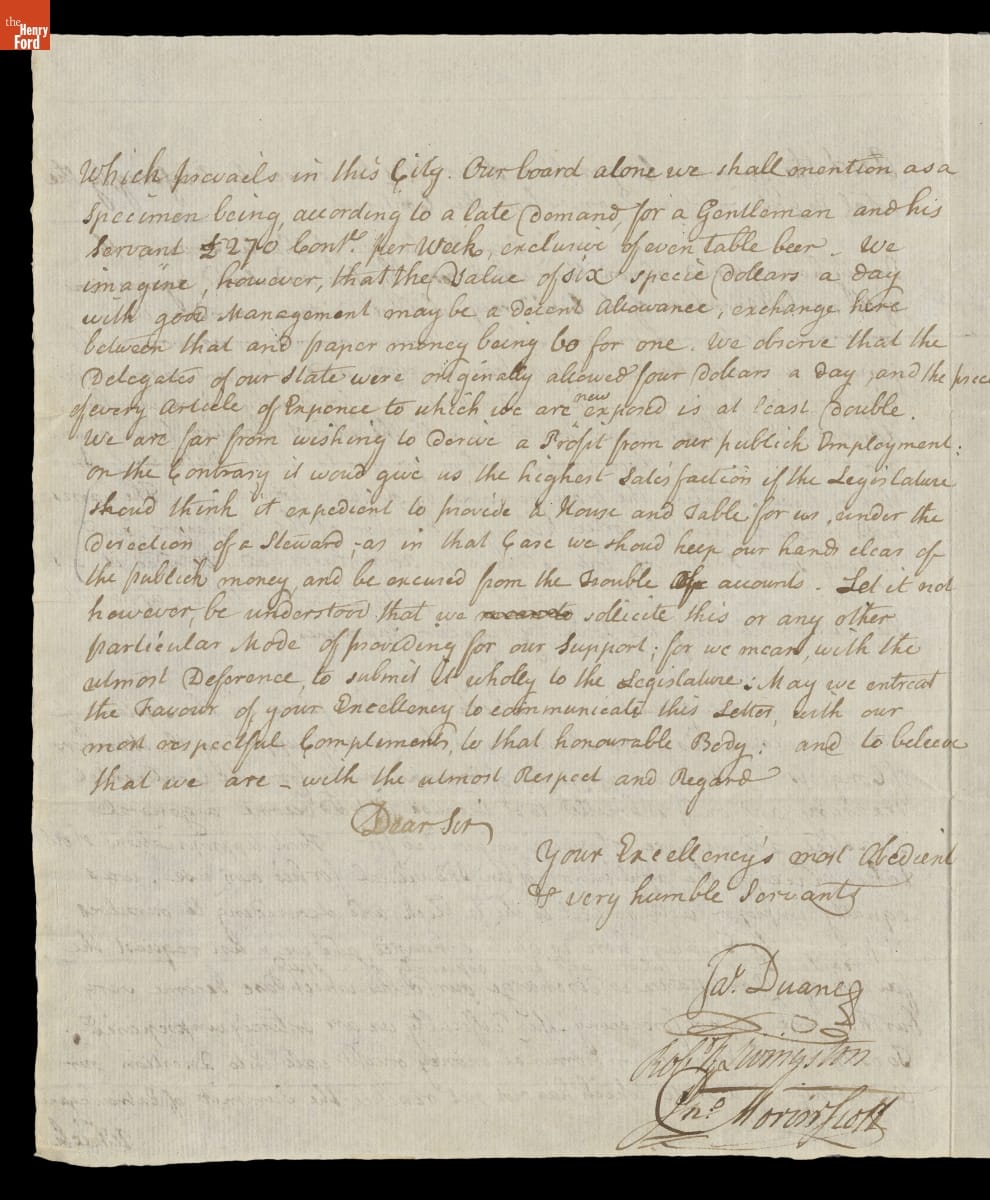 the Henry Ford
Which prevails in this City. Our board alone we shall mention as a
Specimen being, according to a late Demand, for a Gentleman and his
Servant £270 Contl. per Week, exclusive of even table beer. We
imagine, however, that the Value of six specie Dollars a day
with good Management may be a decent Allowance, exchange here
between that and paper money being 60 for one. We observe that the
Delegates of our State were originally allowed four Dollars a Day, and the price
of every Article of Expence to which we are new exposed is at least Double.
We are far from wishing to derive a Profit from our publick Employment:
on the Contrary it woud give us the highest Satisfaction if the Legislature
shoud think it expedient to provide a House and Table for us, under the
Direction of a Steward; as in that Case we shoud keep our hands clear of
the publick money, and be excused from the Trouble of accounts. Let it not
however, be understood that we sollicite this or any other
particular Mode of providing for our Support; for we mean, with the
utmost Deference, to submit it wholly to the Legislature: May we entreat
the Favour of your Excellency to communicate this Letter, with our
most respectful Compliments, to that honourable Body: and to beleeve
that we are - with the utmost Respect and Regard
Dear Sir
Your Excellency's most Obedient
& very humble Servants
Jas. Duane
Robt R Livingston
Jno Morin Scott